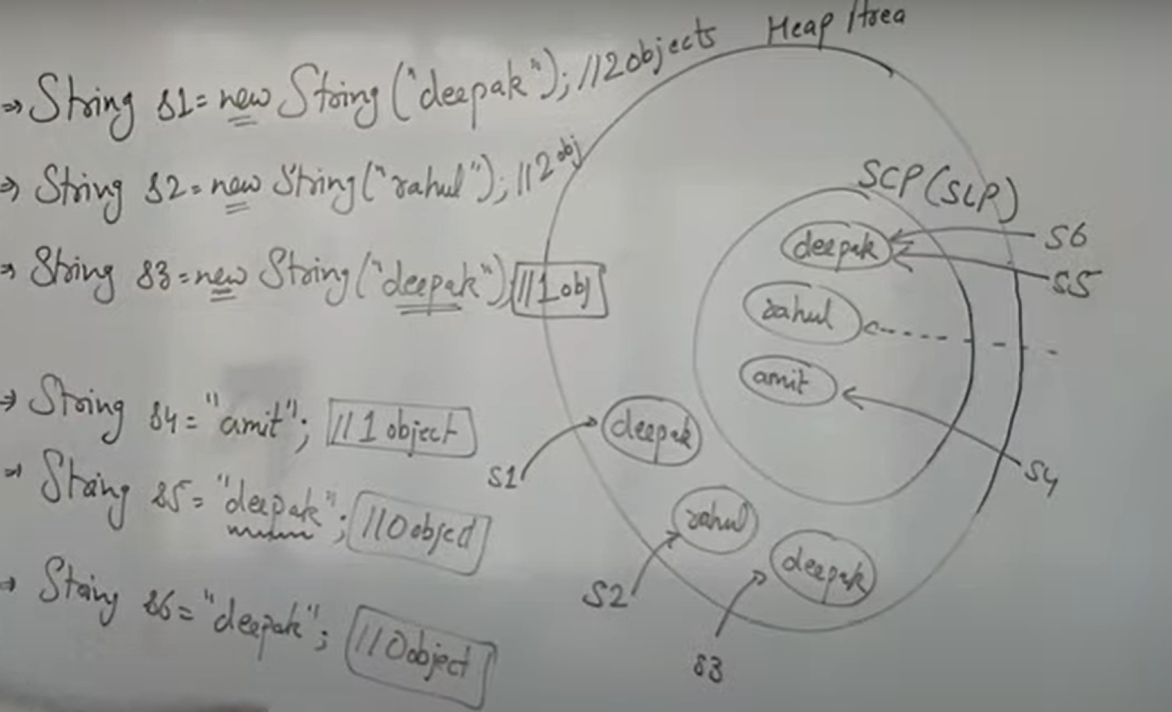 ⇒ String S1 = new String("deepak"); //2 objects
⇒ String S2 = new String("rahul"); //2 obj
⇒ String S3 = new String("deepak") //1 obj
⇒ String S4 = "amit"; //1 object
⇒ String S5 = "deepak"; //0 object
⇒ String S6 = "deepak"; //0 object
Heap Area
SCP (SLP)
deepak
S6
S5
rahul
amit
S4
deepak
S1
rahul
S2
deepak
S3